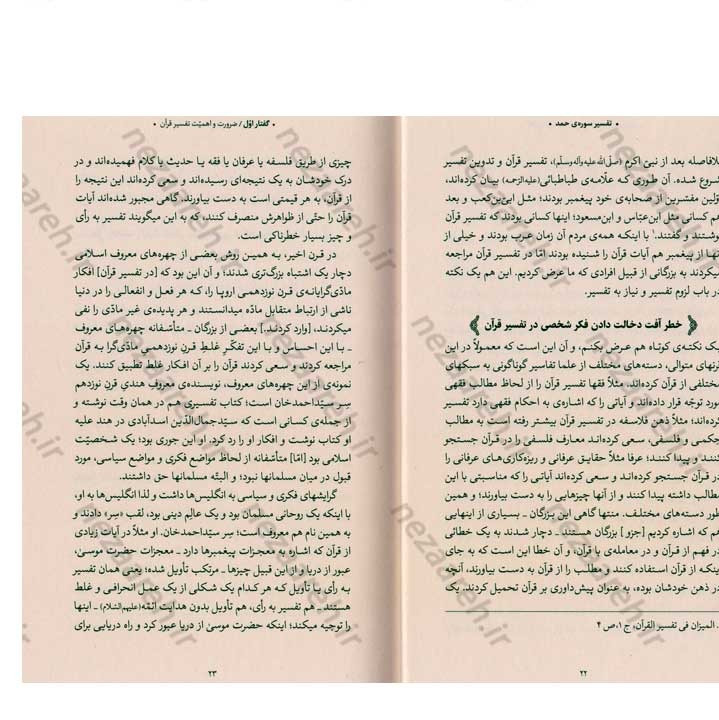 • تفسیر سوره‌ی حمد •
بلافاصله بعد از نبیّ اکرم (صلّی‌الله‌علیه‌وآله‌وسلّم)، تفسیر قرآن و تدوین تفسیر
شروع شده. آن طوری که علّامه‌ی طباطبائی (علیه‌الرّحمه) بیان کرده‌اند،
اوّلین مفسّرین از صحابه‌ی خود پیغمبر بودند؛ مثل ابیّ‌بن‌کعب و بعد
هم کسانی مثل ابن‌عبّاس و ابن‌مسعود؛ اینها کسانی بودند که تفسیر قرآن
نوشتند و گفتند.۱ با اینکه همه‌ی مردم آن زمان عرب بودند و خیلی از
آنها از پیغمبر هم آیات قرآن را شنیده بودند امّا در تفسیر قرآن مراجعه
میکردند به بزرگانی از قبیل افرادی که ما عرض کردیم. این هم یک نکته
در باب لزوم تفسیر و نیاز به تفسیر.
خطر آفت دخالت دادن فکر شخصی در تفسیر قرآن
یک نکته‌ی کوتاه هم عرض بکنم، و آن این است که معمولاً در این
قرنهای متوالی، دسته‌های مختلف از علما تفاسیر گوناگونی به سبکهای
مختلفی از قرآن کرده‌اند. مثلاً فقها تفسیر قرآن را از لحاظ مطالب فقهی
مورد توجّه قرار داده‌اند و آیاتی را که اشاره‌ی به احکام فقهی دارد تفسیر
کرده‌اند؛ مثلاً ذهن فلاسفه در تفسیر قرآن بیشتر رفته است به مطالب
حِکمی و فلسفی، سعی کرده‌اند معارف فلسفی را در قرآن جستجو
کنند و پیدا کنند؛ عرفا مثلاً حقایق عرفانی و ریزه‌کاری‌های عرفانی را
در قرآن جستجو کرده‌اند و سعی کرده‌اند آیاتی را که مناسبتی با این
مطالب داشته پیدا کنند و از آنها چیزهایی را به دست بیاورند؛ و همین
طور دسته‌های مختلف. منتها گاهی این بزرگان ـ بسیاری از اینهایی
هم که اشاره کردیم [جزو] بزرگان هستند ـ دچار شدند به یک خطائی
در فهم از قرآن و در معامله‌ی با قرآن، و آن خطا این است که به جای
اینکه از قرآن استفاده کنند و مطلب را از قرآن به دست بیاورند، آنچه
در ذهن خودشان بوده، به عنوان پیش‌داوری بر قرآن تحمیل کردند. یک
. المیزان فی تفسیر القرآن، ج ۱، ص ۴
۲۲
• گفتار اوّل / ضرورت و اهمیّت تفسیر قرآن •
چیزی از طریق فلسفه یا عرفان یا فقه یا حدیث یا کلام فهمیده‌اند و در
درک خودشان به یک نتیجه‌ای رسیده‌اند و سعی کرده‌اند این نتیجه را
از قرآن، به هر قیمتی است به دست بیاورند. گاهی مجبور شده‌اند آیات
قرآن را حتّی از ظواهرش منصرف کنند، که به این میگویند تفسیر به رأی
و چیز بسیار خطرناکی است.
در قرن اخیر، به همین روش بعضی از چهره‌های معروف اسلامی
دچار یک اشتباه بزرگ‌تری شدند؛ و آن این بود که [در تفسیر قرآن] افکار
مادّی‌گرایانه‌ی قرن نوزدهمی اروپا را، که هر فعل و انفعالی را در دنیا
ناشی از ارتباط متقابل مادّه میدانستند و هر پدیده‌ی غیر مادّی را نفی
میکردند، [وارد کردند.] بعضی از بزرگان ـ متأسّفانه چهره‌های معروف
ـ با این احساس و با این تفکّرِ غلطِ قرن نوزدهمیِ مادّی‌گرا به قرآن
مراجعه کردند و سعی کردند قرآن را بر آن افکار غلط تطبیق کنند. یک
نمونه‌ای از این چهره‌های معروف، نویسنده‌ی معروف هندیِ قرن نوزدهم
سِر سیّداحمدخان است؛ کتاب تفسیری هم در همان وقت نوشته و
از جمله‌ی کسانی است که سیّدجمال‌الدّین اسدآبادی در هند علیه
او کتاب نوشت و افکار او را رد کرد. او این جوری بود؛ یک شخصیّت
اسلامی بود [امّا] متأسّفانه از لحاظ مواضع فکری و مواضع سیاسی، مورد
قبول در میان مسلمانها نبود؛ و البتّه مسلمانها حق داشتند.
گرایشهای فکری و سیاسی به انگلیس‌ها داشت و لذا انگلیس‌ها به او،
با اینکه یک روحانی مسلمان بود و یک عالِم دینی بود، لقب «سِر» دادند و
به همین نام هم معروف است؛ سِر سیّداحمدخان. او مثلاً در آیات زیادی
از قرآن که اشاره به معجزات پیغمبرها دارد ـ معجزات حضرت موسیٰ،
عبور از دریا و از این قبیل چیزها ـ مرتکب تأویل شده؛ یعنی همان تفسیر
به رأی یا تأویل که هر کدام یک شکلی از یک عمل انحرافی و غلط
هستند ـ هم تفسیر به رأی، هم تأویل بدون هدایت ائمّه (علیهم‌السّلام) ـ اینها
را توجیه میکند؛ اینکه حضرت موسیٰ از دریا عبور کرد و راه دریایی برای
۲۳
nezadreh.ir